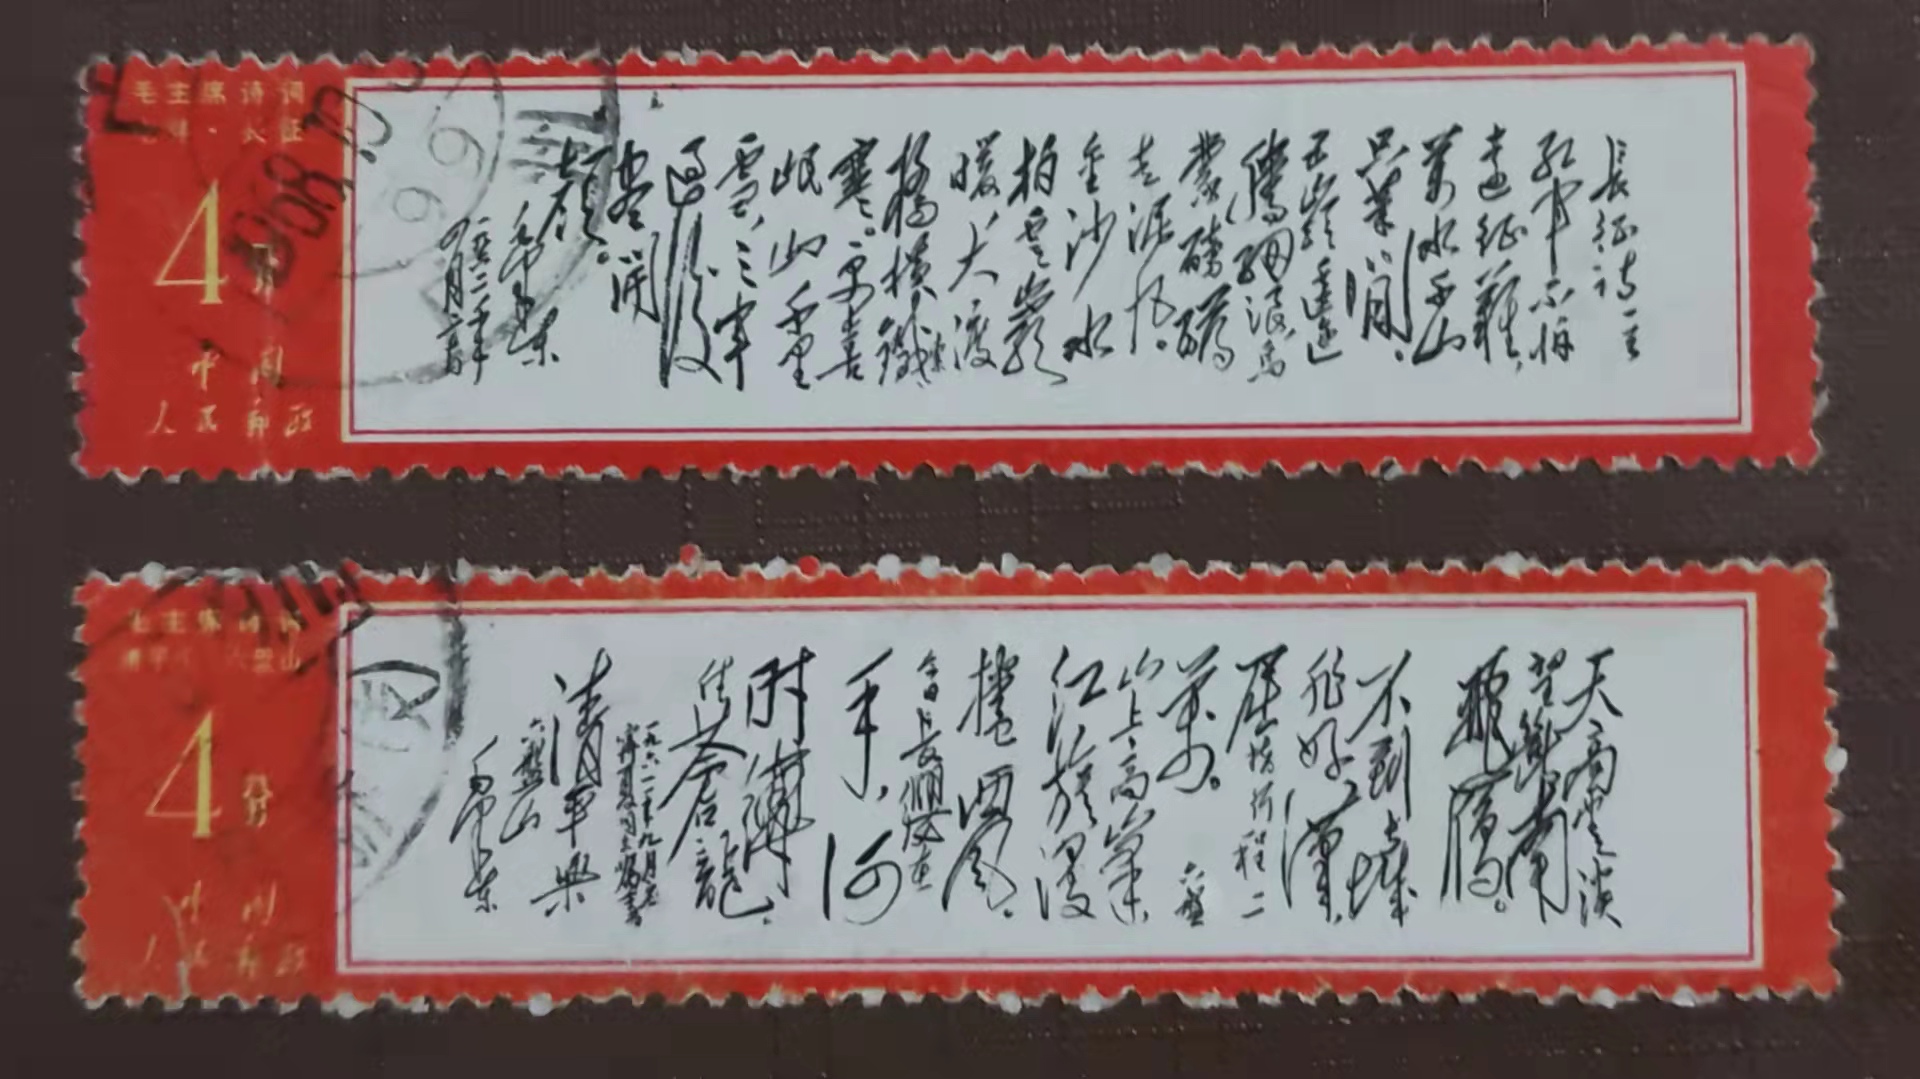 毛主席诗词
七律·长征
4分
中国
人民邮政
長征詩一首
紅軍不怕
遠征難,
萬水千山
只等閒。
五嶺逶迤
騰細浪,烏
蒙磅礴
走泥丸。
金沙水
拍雲崖
暖,大渡
橋橫鐵索
寒。更喜
岷山千里
雪,三軍
過後
盡開
顏。
毛澤東
毛主席诗词
清平乐·六盘山
4分
中国
人民邮政
天高雲淡
望斷南
飛雁。
不到長城
非好漢,
屈指行程二
萬。六盤
山上高峯,
紅旗漫
捲西風。
今日長纓在
手,何
時縛
住蒼龍
一九六一年九月應
寧夏同志囑書
清平樂
六盤山
毛澤東